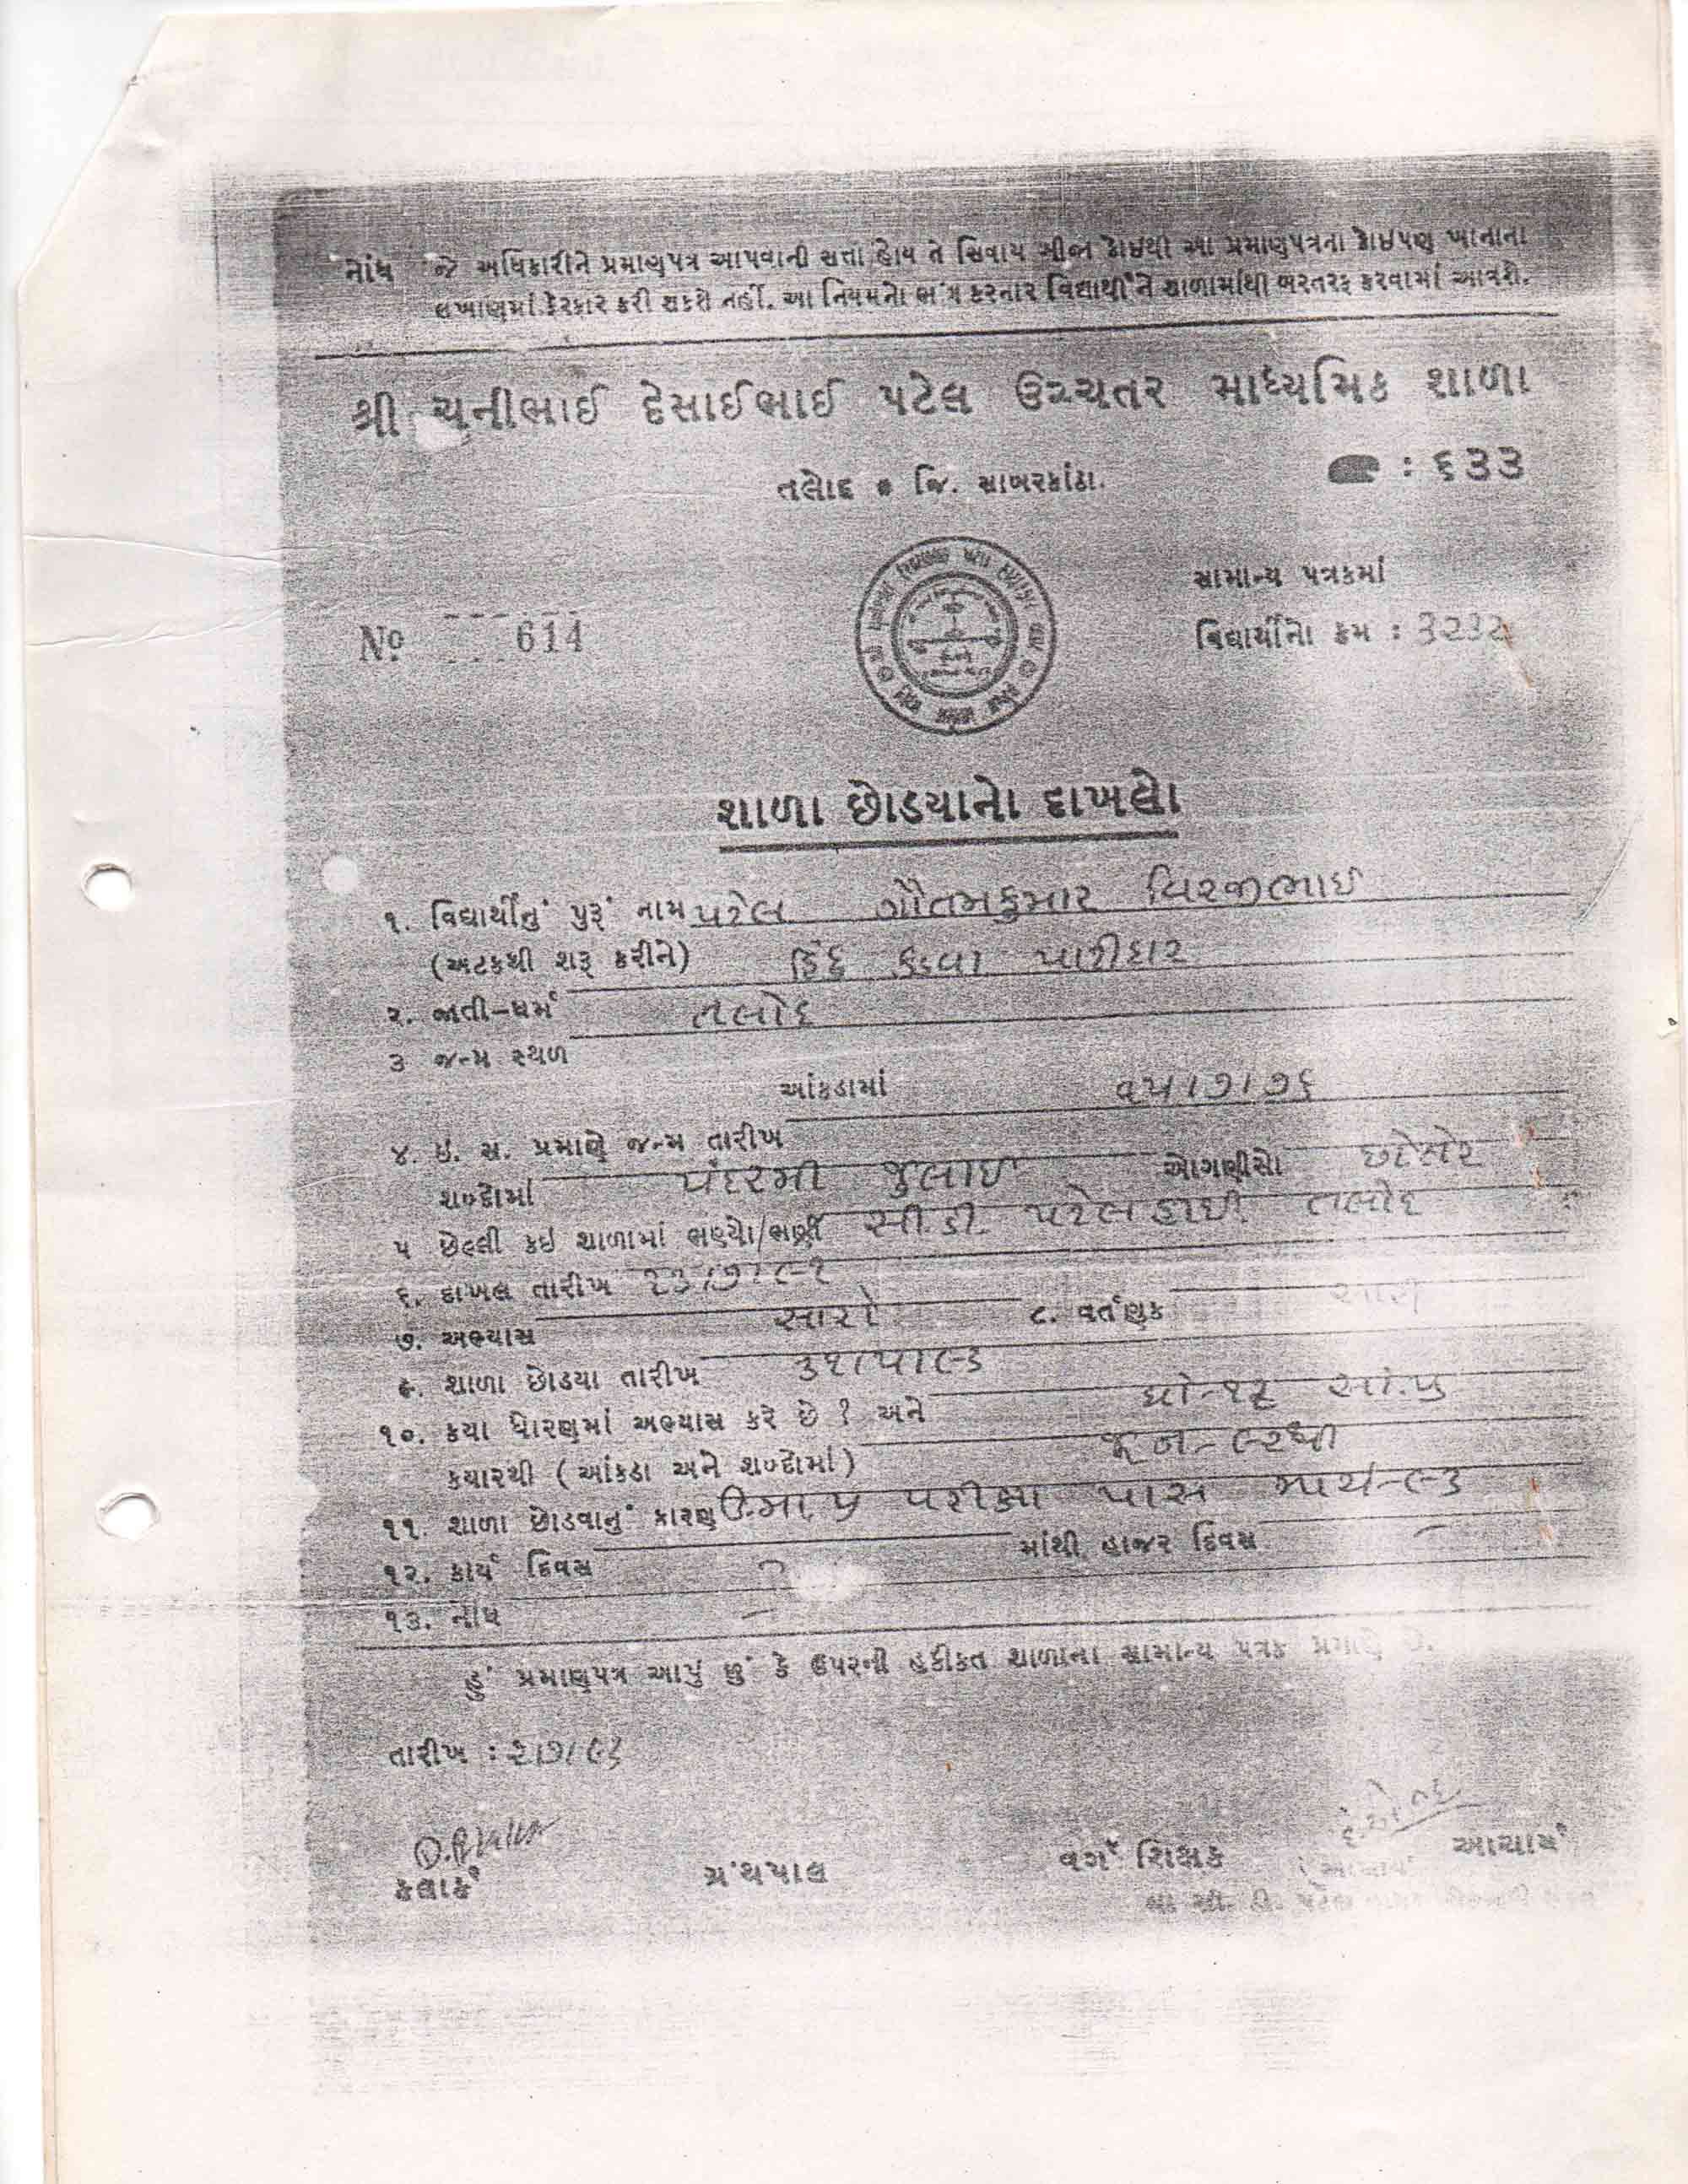 નોંધ જે અધિકારીને પ્રમાણપત્ર આપવાની સત્તા હોય તે સિવાય બીજા કોઈથી આ પ્રમાણપત્રના કોઈપણ ખાનાના
લખાણમાં ફેરફાર કરી શકશે નહીં. આ નિયમનો ભંગ કરનાર વિદ્યાર્થીને શાળામાંથી બરતરફ કરવામાં આવશે.
શ્રી ચુનીભાઈ દેસાઈભાઈ પટેલ ઉચ્ચતર માધ્યમિક શાળા
તલોદ • જિ. સાબરકાંઠા.
☎ : ૬૩૩
સામાન્ય પત્રકમાં
No 614
વિદ્યાર્થીનો ક્રમ : ૩૨૩૨
શાળા છોડયાનો દાખલો
૧. વિદ્યાર્થીનું પુરૂં નામ પટેલ ગૌતમકુમાર વિરજીભાઈ
(અટકથી શરૂ કરીને)
૨. જાતી-ધર્મ હિંદુ કડવા પાટીદાર
૩ જન્મ સ્થળ તલોદ
આંકડામાં ૧૫/૭/૭૬
૪. ઇ. સ. પ્રમાણે જન્મ તારીખ
શબ્દોમાં પંદરમી જુલાઈ ઓગણીસો છોતેર
૫ છેલ્લી કઇ શાળામાં ભણ્યો/ભણી સી.ડી. પટેલ હાઈ. તલોદ
૬. દાખલ તારીખ ૨૩/૭/૯૧
૭. અભ્યાસ સારો ૮. વર્તણુક સારી
૯. શાળા છોડયા તારીખ ૩૧/૫/૯૩
૧૦. કયા ધોરણમાં અભ્યાસ કરે છે ? અને ધો-૧૨ સા.પ્ર
કયારથી (આંકડા અને શબ્દોમાં) જૂન-૯૨થી
૧૧. શાળા છોડવાનું કારણ ઉ.મા.પ્ર પરીક્ષા પાસ માર્ચ-૯૩
૧૨. કાર્ય દિવસ માંથી હાજર દિવસ —
૧૩. નોંધ —
હું પ્રમાણપત્ર આપું છું કે ઉપરની હકીકત શાળાના સામાન્ય પત્રક પ્રમાણે છે.
તારીખ : ૨/૭/૯૩
કલાર્ક ગ્રંથપાલ વર્ગ શિક્ષક આચાર્ય